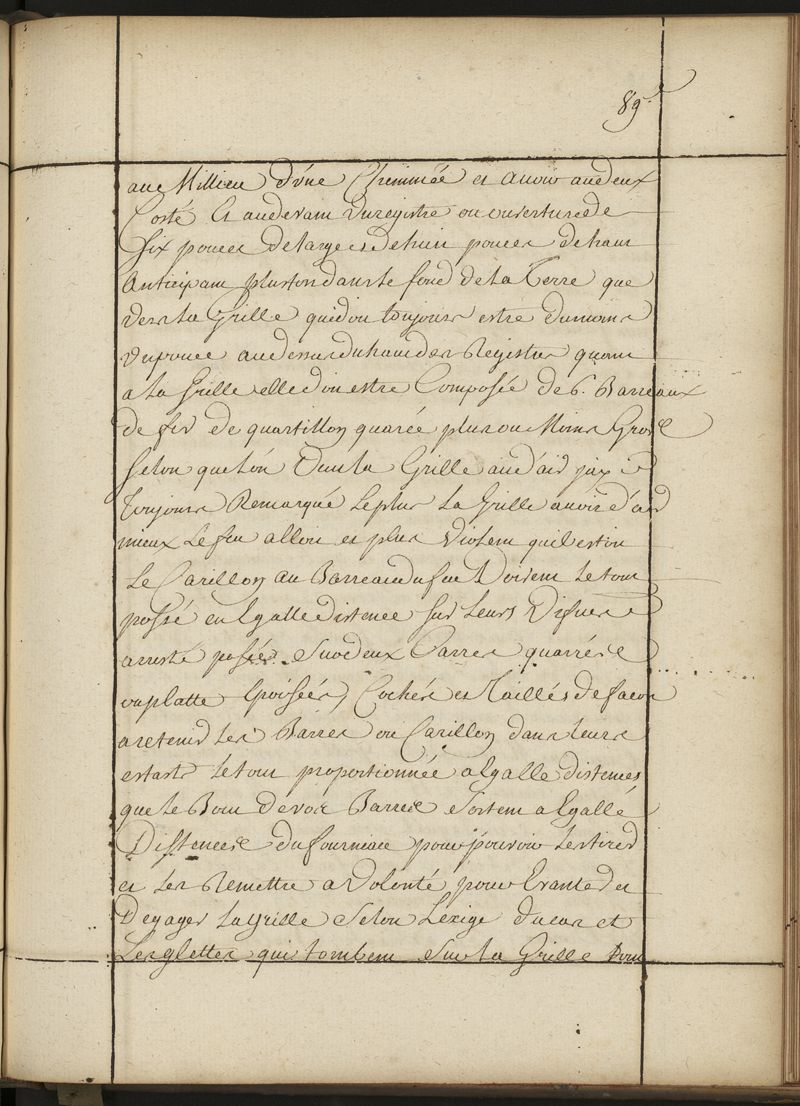 89.
aue Millieu d'vne Cheminée et auoir aue deux
Costé et audeuant vn registre ou ouverture de
six pouces de large et de huit pouces de haut
Anticipant pluston dans le fond de la Terre que
vers la Grille qui doit toujours estre du moins
vn pouce au dessus du haut des Registres quant
a la Grille elle doit estre Composée de 6. Barreaux
de fer de quartillon quarée plus ou Moins Grosse
selon que lon veut la Grille aue d'air jay
Toujours Remarqué le plus la Grille auoir d'air
mieux le feu alloit et plus violent quil estoit
Le Carillon au Barreau du feu Doivent le tout
possé en Egalle distence sur leurs
arresté posées sur deux Barres quarrés
ou platte Epoissées, Cochés et Taillés de facon
a retenir les Barres ou Carillon dans leurs
estants le tout proportionnée a Egalle distences
que le Bout de vos Barres sortent a Egalle
Distences du fourneau pour pouvoir les tirer
et les Remettre a Volonté pour
Degager la grille selon l'Exige du cas et
Les glettes qui tombent sur la Grille dont